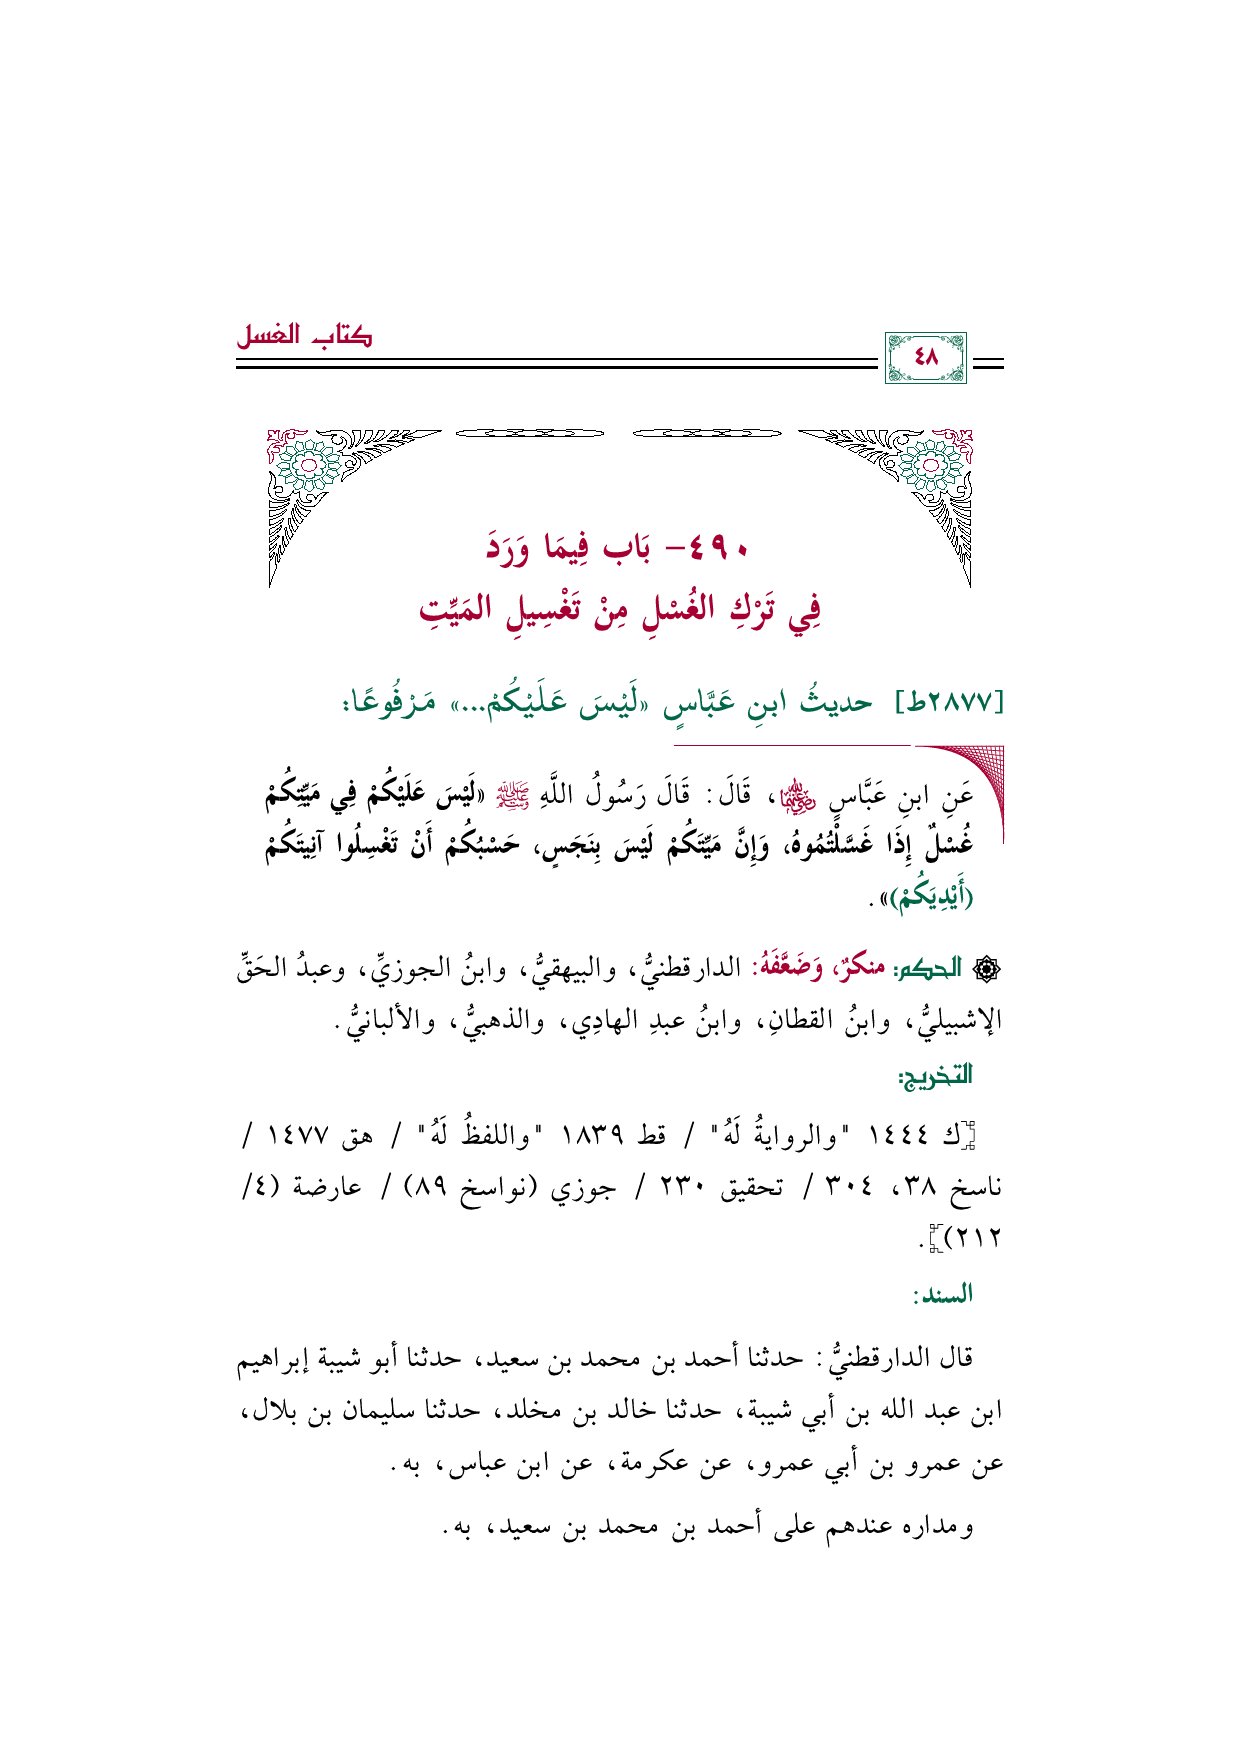 كتاب الغسل
٤٨
٤٩٠- بَاب فِيمَا وَرَدَ
فِي تَرْكِ الغُسْلِ مِنْ تَغْسِيلِ المَيِّتِ
[٢٨٧٧ط] حديثُ ابنِ عَبَّاسٍ «لَيْسَ عَلَيْكُمْ...» مَرْفُوعًا:
عَنِ ابنِ عَبَّاسٍ رضي الله عنهما، قَالَ: قَالَ رَسُولُ اللَّهِ ﷺ «لَيْسَ عَلَيْكُمْ فِي مَيِّتِكُمْ
غُسْلٌ إِذَا غَسَّلْتُمُوهُ، وَإِنَّ مَيِّتَكُمْ لَيْسَ بِنَجَسٍ، حَسْبُكُمْ أَنْ تَغْسِلُوا آنِيتَكُمْ
(أَيْدِيَكُمْ)».
الحكم: منكرٌ، وَضَعَّفَهُ: الدارقطنيُّ، والبيهقيُّ، وابنُ الجوزيِّ، وعبدُ الحَقِّ
الإشبيليُّ، وابنُ القطانِ، وابنُ عبدِ الهادِي، والذهبيُّ، والألبانيُّ.
التخريج:
[ك ١٤٤٤ "والروايةُ لَهُ" / قط ١٨٣٩ "واللفظُ لَهُ" / هق ١٤٧٧ /
ناسخ ٣٨، ٣٠٤ / تحقيق ٢٣٠ / جوزي (نواسخ ٨٩) / عارضة (٤/
٢١٢)].
السند:
قال الدارقطنيُّ: حدثنا أحمد بن محمد بن سعيد، حدثنا أبو شيبة إبراهيم
ابن عبد الله بن أبي شيبة، حدثنا خالد بن مخلد، حدثنا سليمان بن بلال،
عن عمرو بن أبي عمرو، عن عكرمة، عن ابن عباس، به.
ومداره عندهم على أحمد بن محمد بن سعيد، به.